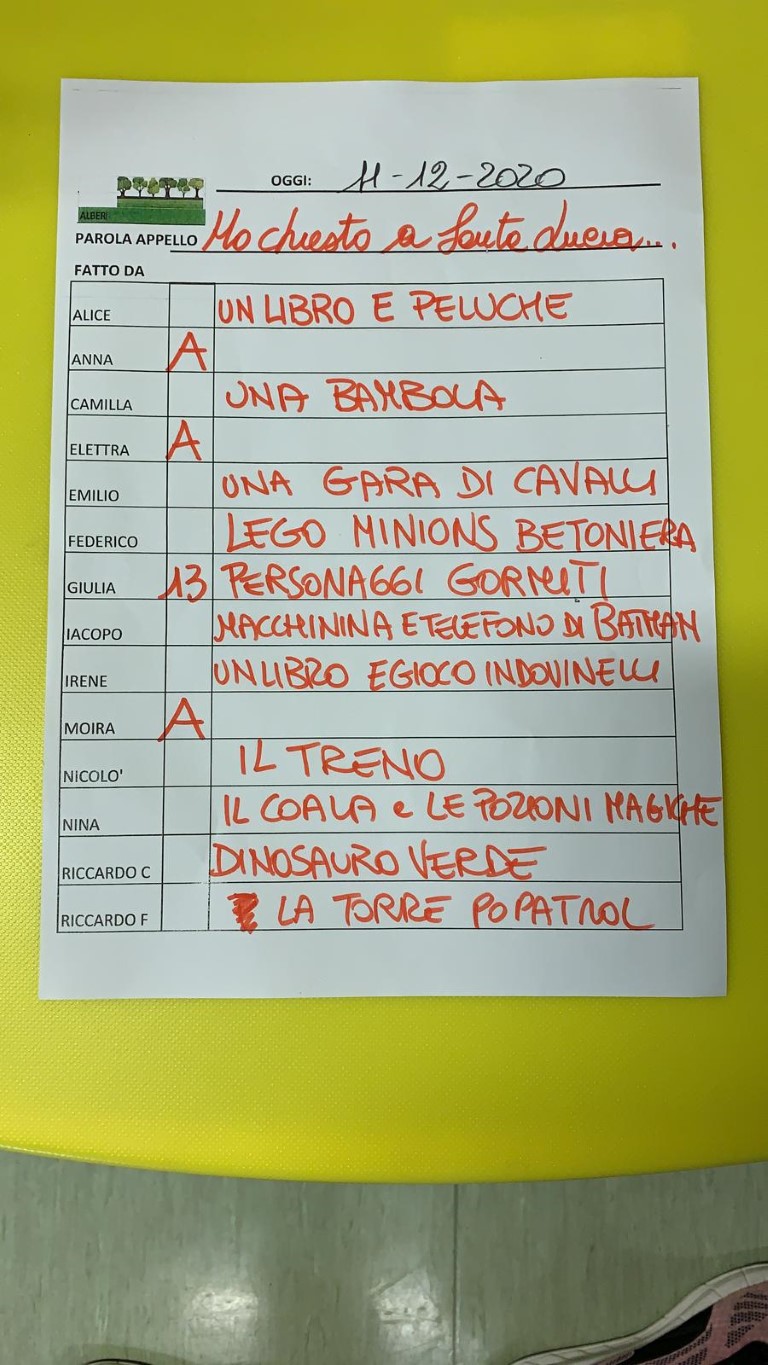 OGGI: 11-12-2020
ALBERI
PAROLA APPELLO Ho chiesto a Santa Lucia...
FATTO DA
ALICE UN LIBRO E PELUCHE
ANNA A
CAMILLA UNA BAMBOLA
ELETTRA A
EMILIO UNA GARA DI CAVALLI
FEDERICO LEGO MINIONS BETONIERA
GIULIA 13 PERSONAGGI GORMITI
IACOPO MACCHININA E TELEFONO DI BATMAN
IRENE UN LIBRO E GIOCO INDOVINELLI
MOIRA A
NICOLO' IL TRENO
NINA IL COALA e LE POZIONI MAGICHE
RICCARDO C DINOSAURO VERDE
RICCARDO F LA TORRE POPATROL